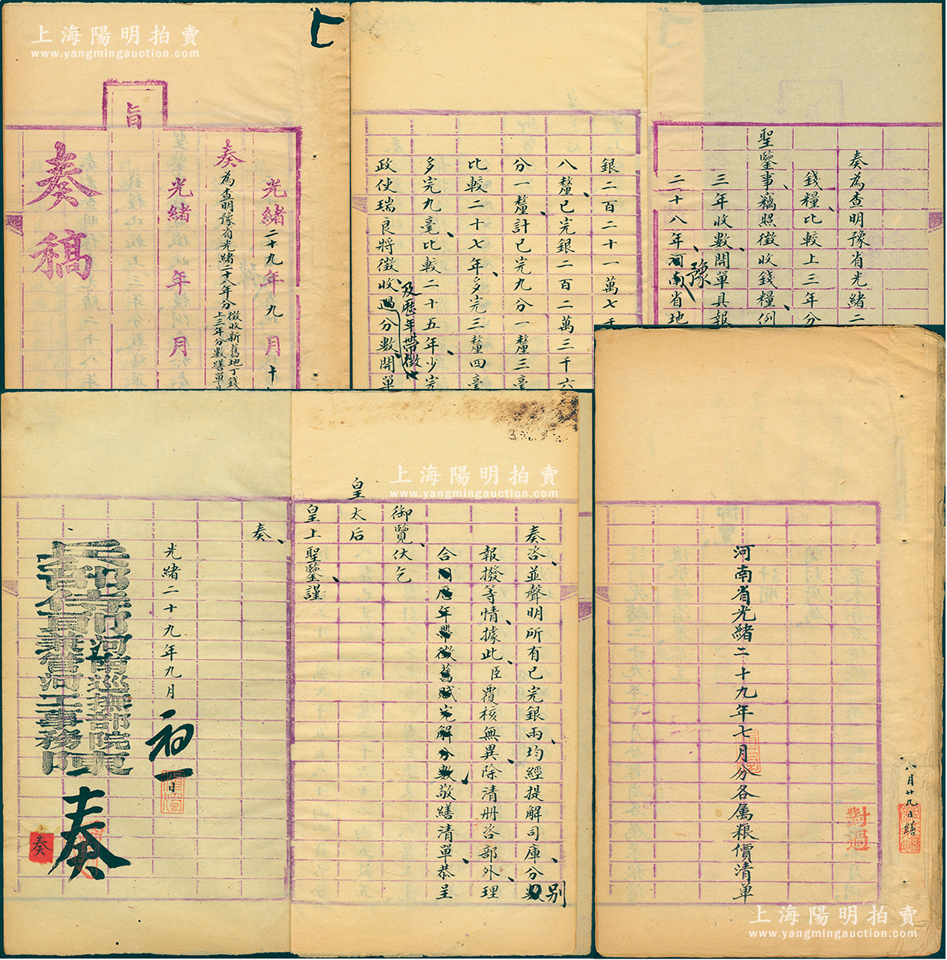 上海陽明拍賣
www.yangmingauction.com
旨
奏稿
光緒二十九年九月十
奏為查明豫省光緒二十八年分徵收新舊地丁錢
上三年分數繕單
光緒 年 月
奏為查明豫省光緒二
錢糧比較上三年分
聖鑒事竊照徵收錢糧例
三年收數開單具報
二十八年河南省地
豫
銀二百二十一萬七千
八釐已完銀二百二萬三千六
分一釐計已完九分一釐三毫
比較二十七年多完三釐四毫
多完九毫比較二十五年少完
政使瑞良將徵收過分數開單
及歷年帶徵
上海陽明拍賣
www.yangmingauction.com
奏咨並聲明所有已完銀兩均經提解司庫分別
報撥等情據此臣覆核無異除清冊咨部外理
合同歷年帶徵舊賦完解分數敬繕清單恭呈
御覽伏乞
皇太后
皇上聖鑒謹
奏
光緒二十九年九月初一日
兵部侍郎河南巡撫部院兼管河工事務
奏
奏
河南省光緒二十九年七月分各屬粮價清單
對過
八月廿九日繕
上海陽明拍賣
www.yangmingauction.com